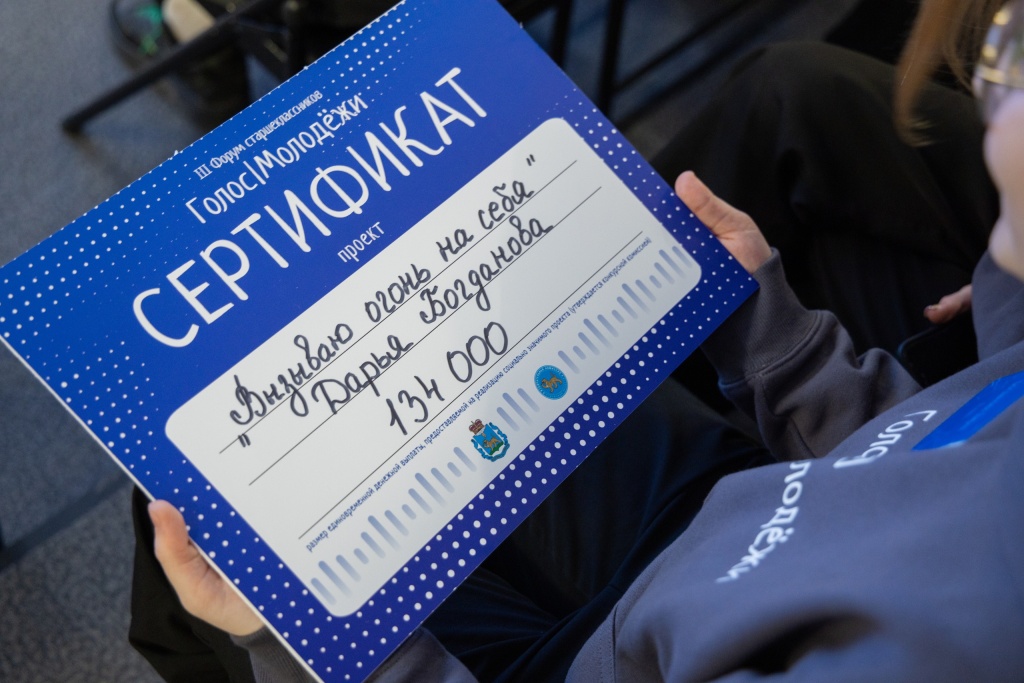 III Форум старшеклассников
Голос|Молодёжи
СЕРТИФИКАТ
проект
"Вызываю огонь на себя"
Дарья Богданова
134 000
размер единовременной денежной выплаты, предоставляемой на реализацию социально значимого проекта (утверждается конкурсной комиссией)
Голо
молодёжи